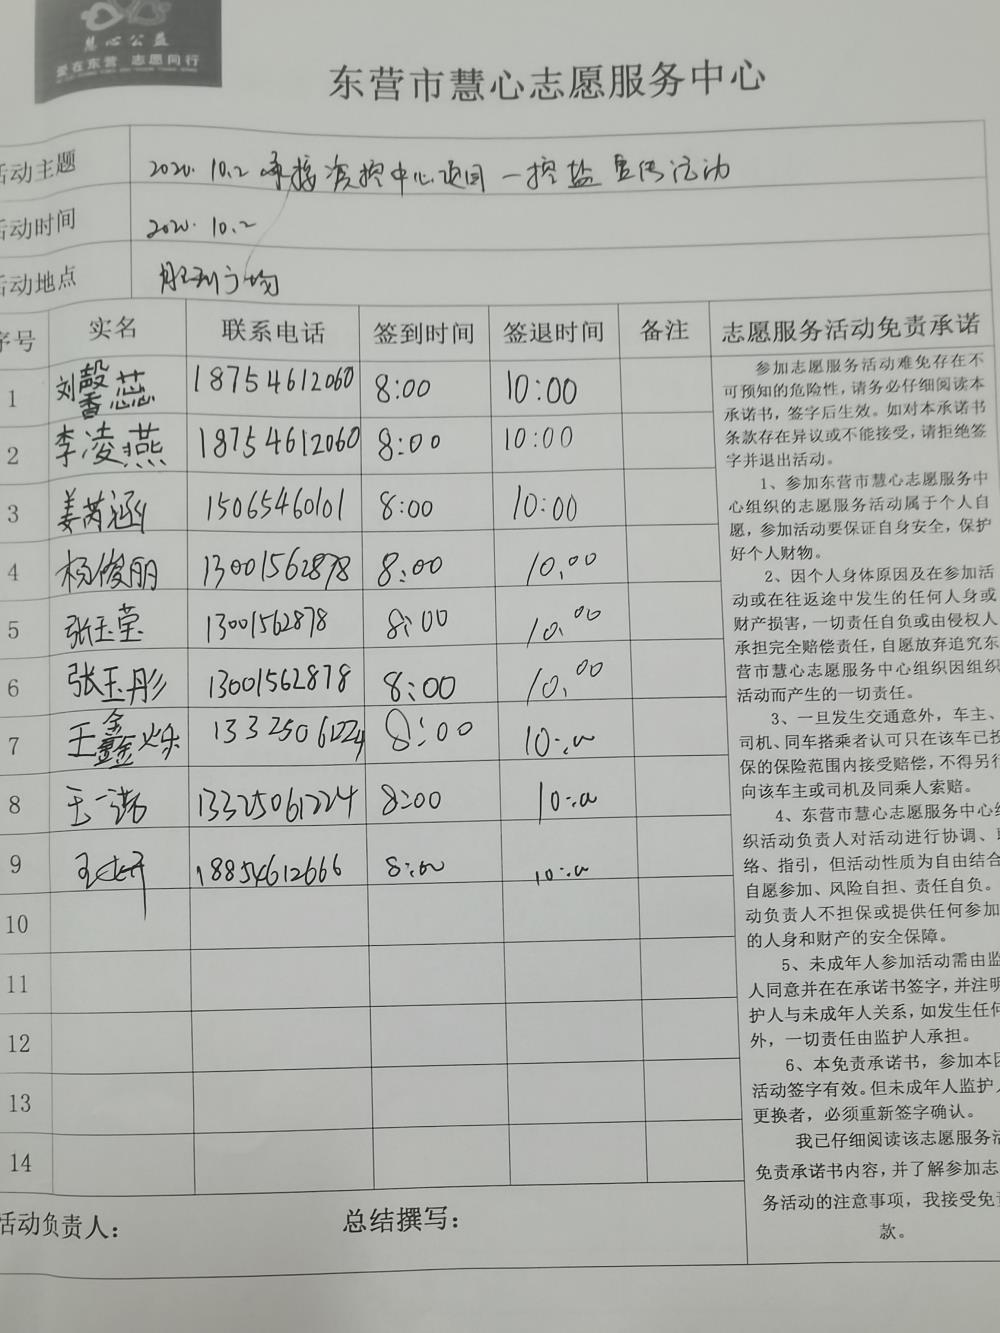 慧心公益
爱在东营 志愿同行
东营市慧心志愿服务中心
活动主题 2020.10.2 承接资控中心项目一控盐宣传活动
活动时间 2020.10.2
活动地点 胜利广场
序号 实名 联系电话 签到时间 签退时间 备注 志愿服务活动免责承诺
1 刘馨蕊 18754612060 8:00 10:00
2 李凌燕 18754612060 8:00 10:00
3 姜芮涵 15065460101 8:00 10:00
4 杨俊丽 13001562878 8:00 10:00
5 张玉莹 13001562878 8:00 10:00
6 张玉彤 13001562878 8:00 10:00
7 王鑫烁 13325061224 8:00 10:00
8 王一诺 13325061224 8:00 10:00
9 18854612666 8:00 10:00
10
11
12
13
14
参加志愿服务活动难免存在不
可预知的危险性，请务必仔细阅读本
承诺书，签字后生效。如对本承诺书
条款存在异议或不能接受，请拒绝签
字并退出活动。
1、参加东营市慧心志愿服务中
心组织的志愿服务活动属于个人自
愿，参加活动要保证自身安全，保护
好个人财物。
2、因个人身体原因及在参加活
动或在往返途中发生的任何人身或
财产损害，一切责任自负或由侵权人
承担完全赔偿责任，自愿放弃追究东
营市慧心志愿服务中心组织因组织
活动而产生的一切责任。
3、一旦发生交通意外，车主、
司机、同车搭乘者认可只在该车已投
保的保险范围内接受赔偿，不得另行
向该车主或司机及同乘人索赔。
4、东营市慧心志愿服务中心组
织活动负责人对活动进行协调、联
络、指引，但活动性质为自由结合
自愿参加、风险自担、责任自负。
动负责人不担保或提供任何参加
的人身和财产的安全保障。
5、未成年人参加活动需由监
人同意并在在承诺书签字，并注明
护人与未成年人关系，如发生任何
外，一切责任由监护人承担。
6、本免责承诺书，参加本团
活动签字有效。但未成年人监护人
更换者，必须重新签字确认。
我已仔细阅读该志愿服务活
免责承诺书内容，并了解参加志
务活动的注意事项，我接受免责
款。
活动负责人： 总结撰写：